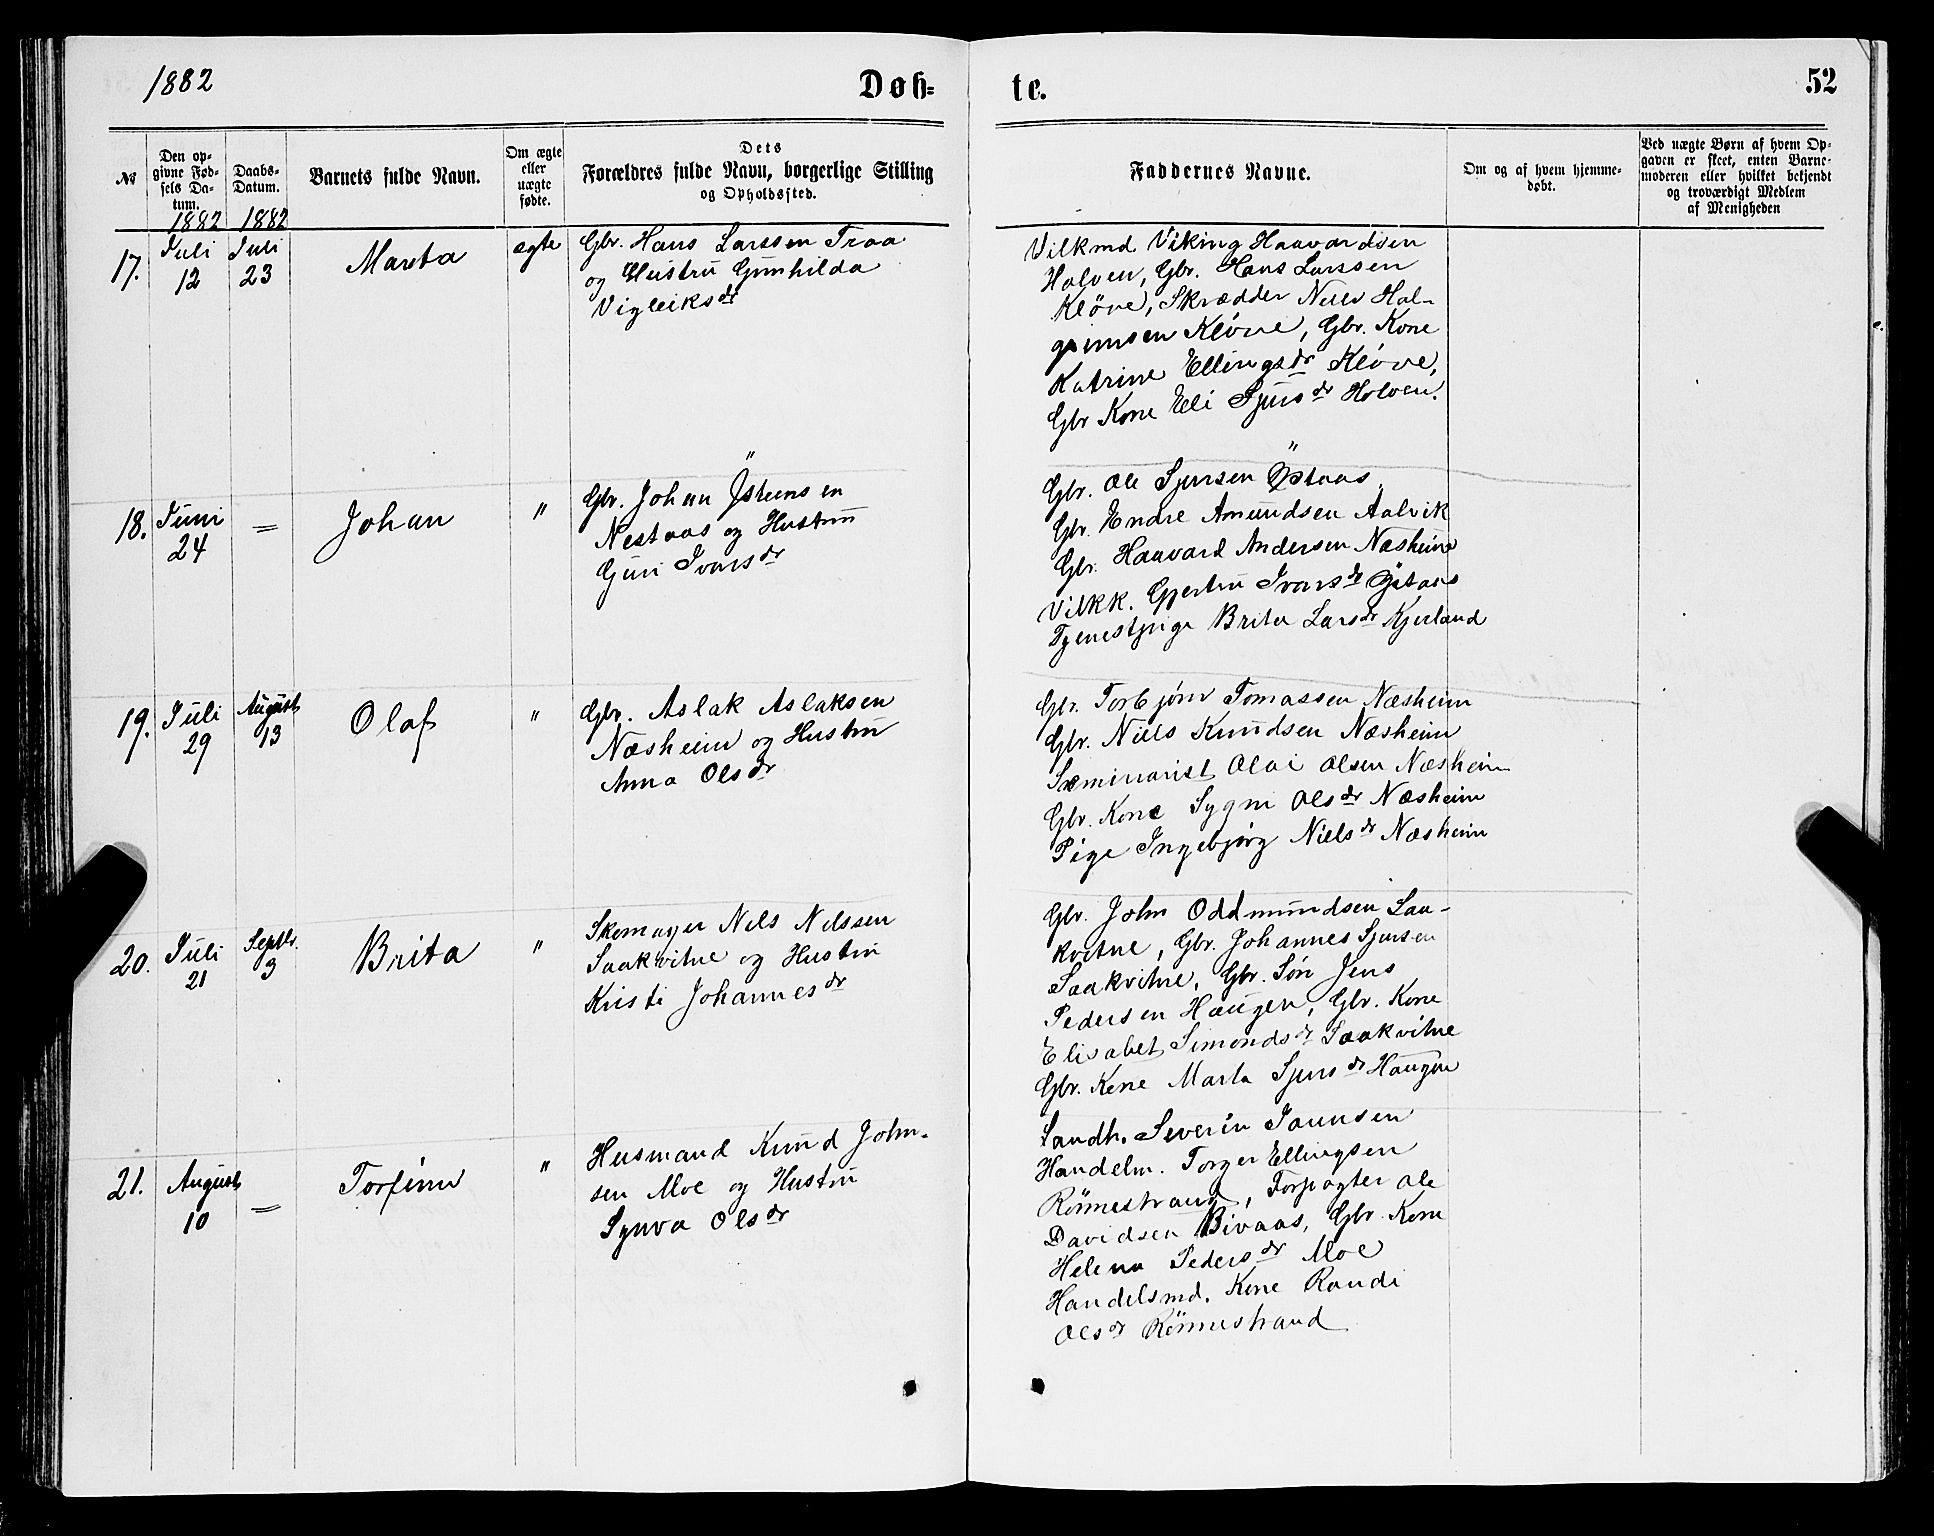 1882
Døb=
te.
52
№
Den op-
givne Fød-
sels Da-
tum.
1882
Daabs-
Datum.
1882
Barnets fulde Navn.
Om ægte
eller
uægte
fødte.
Dets
Forældres fulde Navn, borgerlige Stilling
og Opholdssted.
Faddernes Navne.
Om og af hvem hjemme-
døbt.
Ved uægte Børn af hvem Op-
gaven er skeet, enten Barne-
moderen eller hvilket betjendt
og troværdigt Medlem
af Menigheden
17.
Juli
12
Juli
23
Marta
ægte
Gbr. Hans Larssen Traa
og Hustru Gunhilda
Vigleiksdr
Vilkmd Viking Haavardsen
Holven, Gbr. Hans Larssen
Kløve, Skrædder Nils Hal-
grimsen Kløve, Gbr. Kone
Katrine Ellingsdr Kløve,
Gbr Kone Eli Sjursdr Holven.
18.
Juni
24
=
Johan
"
Gbr. Johan Østensen
Nestaas og Hustru
Guri Ivarsdr
Gbr. Ole Sjursen Østaas
Gbr. Endre Amundsen Aalvik
Gbr. Haavard Andersen Næsheim
Vilkk. Gjertru Ivarsdr Østaas
Tjenestpige Brita Larsdr Kjerland
19.
Juli
29
August
13
Olaf
"
Gbr. Aslak Aslaksen
Næsheim og Hustru
Anna Olsdr
Gbr. Torbjørn Tomassen Næsheim
Gbr. Niels Knudsen Næsheim
Seminarist Olai Olsen Næsheim
Gbr. Kone Sygni Olsdr Næsheim
Pige Ingebjørg Nielsdr Næsheim
20.
Juli
21
Septbr.
3
Brita
"
Skomager Nels Nelssen
Saakvitne og Hustru
Kristi Johannesdr
Gbr. John Oddmundsen Saa-
kvitne, Gbr. Johannes Sjursen
Saakvitne, Gbr. Søn Jens
Pedersen Haugen, Gbr. Kone
Elisabet Simondsdr Saakvitne
Gbr. Kone Marta Sjursdr Haugen
21.
August
10
=
Torfinn
"
Husmand Knud John-
sen Moe og Hustru
Synva Olsdr
Landh. Severin Jaunsen
Handelm. Torger Ellingsen
Rönnestrand, Forpagter Ole
Davidsen Bivaas, Gbr. Kone
Helena Pedersdr Moe
Handelsmd. Kone Randi
Olsdr Rönnestrand